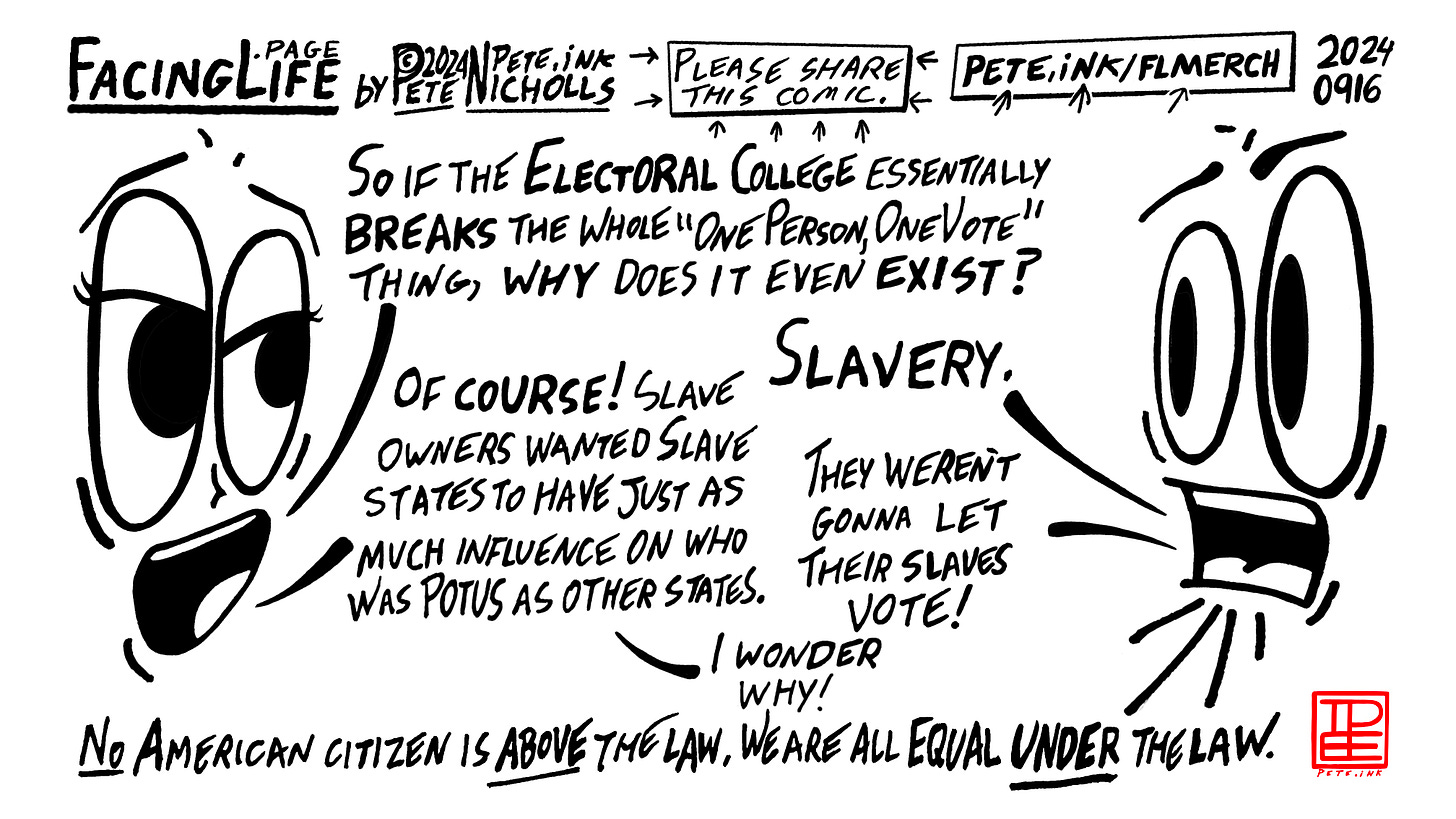 FACINGLIFE
.PAGE
BY ©2024 PETE.iNK
PETE NICHOLLS
PLEASE SHARE
THIS COMIC.
PETE.iNK/FLMERCH
2024
0916
SO IF THE ELECTORAL COLLEGE ESSENTIALLY
BREAKS THE WHOLE "ONE PERSON, ONE VOTE"
THING, WHY DOES IT EVEN EXIST?
SLAVERY.
OF COURSE! SLAVE
OWNERS WANTED SLAVE
STATES TO HAVE JUST AS
MUCH INFLUENCE ON WHO
WAS POTUS AS OTHER STATES.
THEY WEREN'T
GONNA LET
THEIR SLAVES
VOTE!
I WONDER
WHY!
NO AMERICAN CITIZEN IS ABOVE THE LAW. WE ARE ALL EQUAL UNDER THE LAW.
PETE.iNK